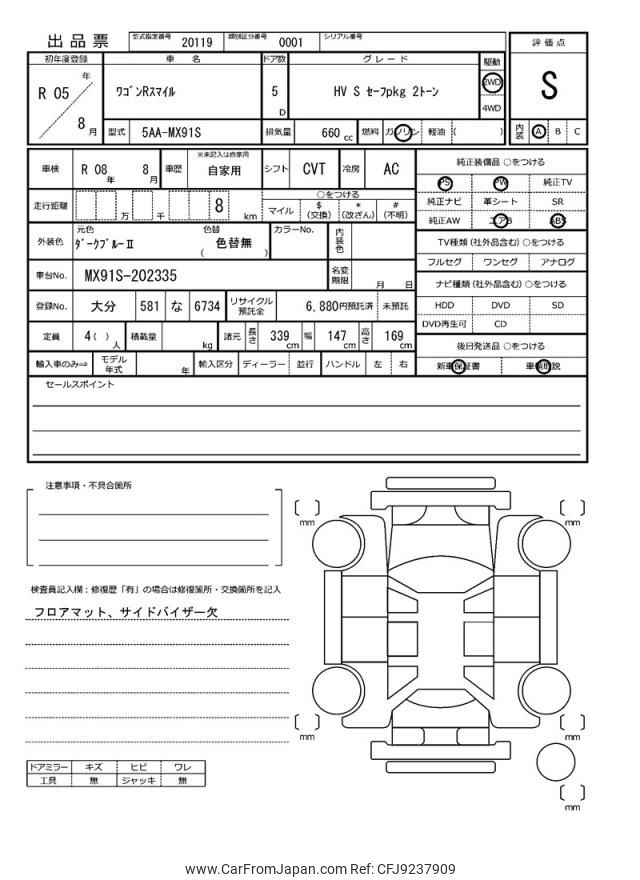 出品票 型式指定番号 20119 類別区分番号 0001 シリアル番号
初年度登録 車名 ドア数 グレード 駆動 評価点
R 05 年 8 月 ﾜｺﾞﾝRｽﾏｲﾙ 5 D HV S ｾｰﾌpkg 2ﾄｰﾝ 2WD 4WD S
型式 5AA-MX91S 排気量 660 cc 燃料 ガソリン 軽油 ( ) 内装 A B C
車検 R 08 年 8 月 車歴 ※未記入は自家用 自家用 シフト CVT 冷房 AC
走行距離 万 千 8 km ○をつける マイル $(交換) *(改ざん) #(不明)
外装色 元色 ﾀﾞｰｸﾌﾞﾙｰⅡ 色替 ( 色替無 ) カラーNo. 内装色
車台No. MX91S-202335 名変期限 月 日
登録No. 大分 581 な 6734 リサイクル預託金 6,880円預託済 未預託
定員 4 ( ) 人 積載量 kg 諸元 長さ 339 cm 幅 147 cm 高さ 169 cm
輸入車のみ⇒ モデル年式 年 輸入区分 ディーラー 並行 ハンドル 左 右
純正装備品 ○をつける
PS PW 純正TV
純正ナビ 革シート SR
純正AW エアB ABS
TV種類 (社外品含む) ○をつける
フルセグ ワンセグ アナログ
ナビ種類 (社外品含む) ○をつける
HDD DVD SD
DVD再生可 CD
後日発送品 ○をつける
新車保証書 車輌取説
セールスポイント
注意事項・不具合箇所
検査員記入欄：修復歴「有」の場合は修復箇所・交換箇所を記入
フロアマット、サイドバイザー欠
ドアミラー キズ ヒビ ワレ
工具 無 ジャッキ 無
mm
mm
mm
mm
mm
www.CarFromJapan.com Ref: CFJ9237909